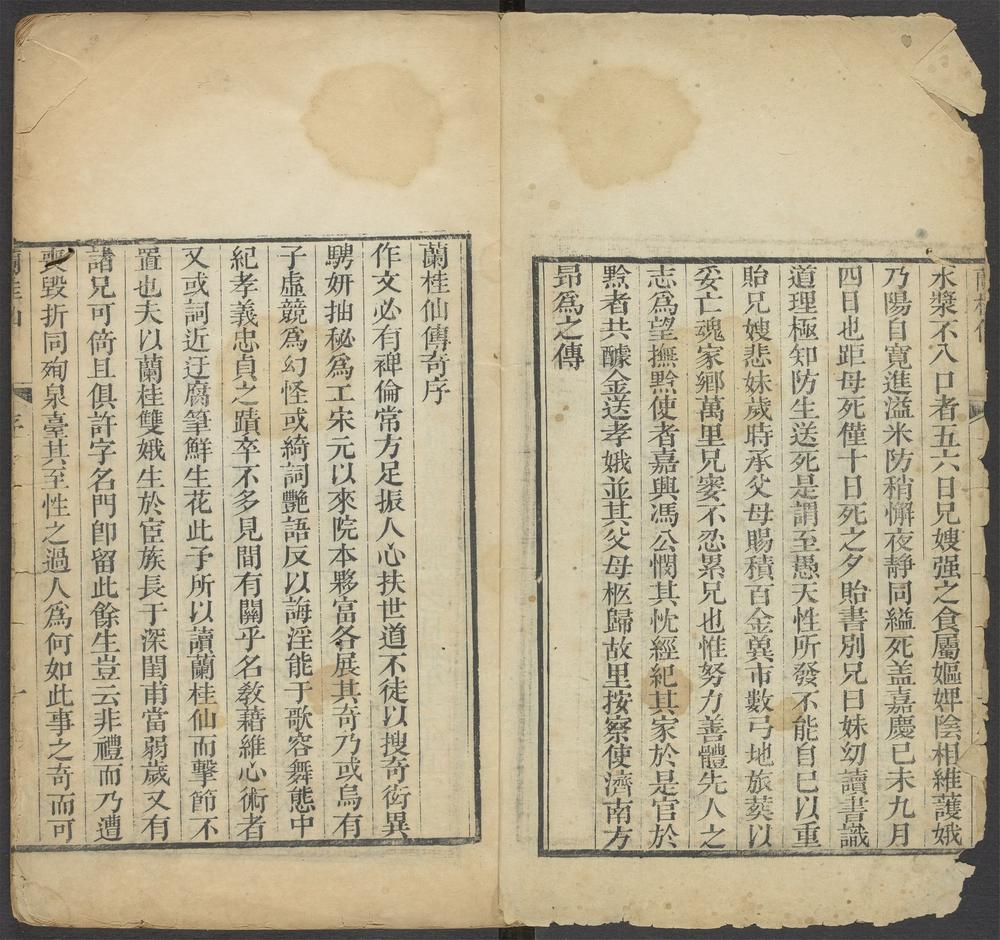 水漿不入口者五六日兄嫂强之食屬嫗婢陰相維護娥
乃陽自寬進溢米防稍懈夜静同縊死盖嘉慶巳未九月
四日也距母死僅十日死之夕貽書別兄曰妹幼讀書識
道理極知防生送死是謂至愚天性所發不能自已以重
貽兄嫂悲妹歲時承父母賜積百金冀市數弓地旅葬以
妥亡魂家鄉萬里兄窭不忍累兄也惟努力善體先人之
志爲望撫黔使者嘉興馮公憫其忱經紀其家於是官於
黔者共醵金送孝娥並其父母柩歸故里按察使濟南方
昻爲之傳
蘭桂仙傳奇序
作文必有裨倫常方足振人心扶世道不徒以搜奇衒異
騁妍抽秘爲工宋元以來院本夥富各展其奇乃或烏有
子虛競爲幻怪或綺詞艷語反以誨淫能于歌容舞態中
紀孝義忠貞之蹟卒不多見間有關乎名敎藉維心術者
又或詞近迂腐筆鮮生花此予所以讀蘭桂仙而擊節不
置也夫以蘭桂雙娥生於宦族長于深閨甫當弱歲又有
諸兄可倚且俱許字名門卽留此餘生豈云非禮而乃遭
喪毀折同殉泉臺其至性之過人爲何如此事之奇而可